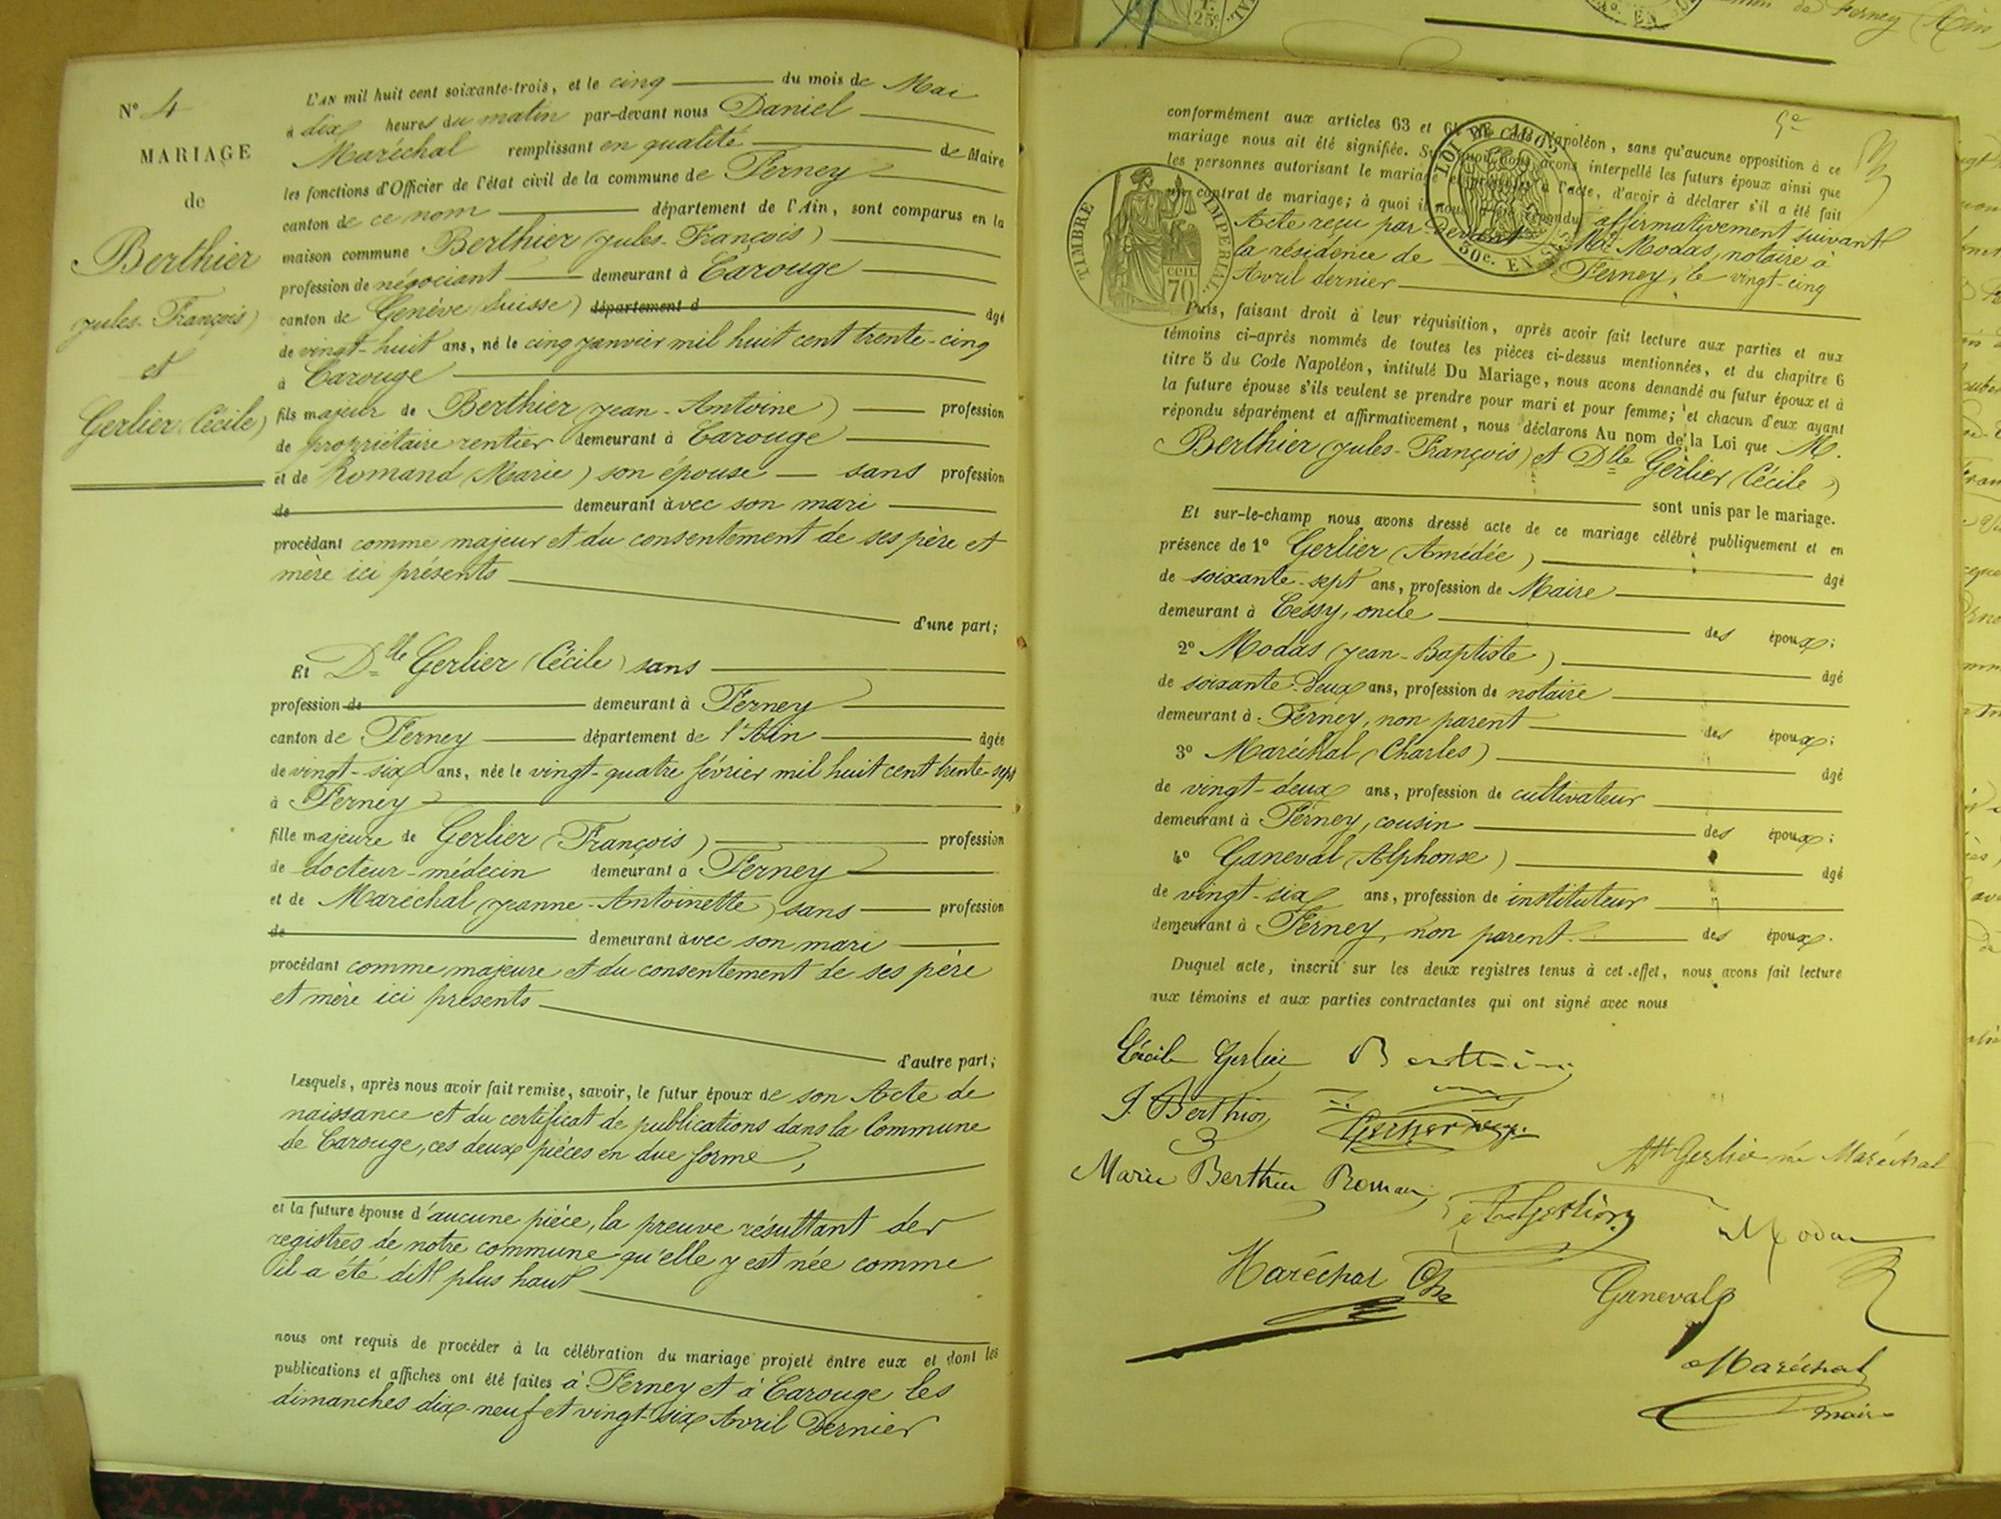 N° 4
MARIAGE
de
Berthier
Jules-François)
et
Gerlier (Cécile)
L'AN mil huit cent soixante-trois, et le cinq du mois de Mai
à dix heures du matin par-devant nous Daniel
Maréchal remplissant en qualité de Maire
les fonctions d'Officier de l'état civil de la commune de Ferney
canton de ce nom département de l'Ain, sont comparus en la
maison commune Berthier (Jules-François)
profession de négociant demeurant à Carouge
canton de Genève (Suisse) département d âgé
de vingt-huit ans, né le cinq janvier mil huit cent trente-cinq
à Carouge
fils majeur de Berthier (Jean-Antoine) profession
de propriétaire rentier demeurant à Carouge
et de Romand (Marie) son épouse sans profession
de demeurant avec son mari
procédant comme majeur et du consentement de ses père et
mère ici présents
d'une part;
Et Dlle Gerlier (Cécile) sans
profession de demeurant à Ferney
canton de Ferney département de l'Ain âgée
de vingt-six ans, née le vingt-quatre février mil huit cent trente-sept
à Ferney
fille majeure de Gerlier (François) profession
de docteur-médecin demeurant à Ferney
et de Maréchal (Jeanne-Antoinette) sans profession
de demeurant avec son mari
procédant comme majeure et du consentement de ses père
et mère ici présents
d'autre part;
Lesquels, après nous avoir fait remise, savoir, le futur époux de son Acte de
naissance et du certificat de publications dans la Commune
de Carouge, ces deux pièces en due forme,
et la future épouse d'aucune pièce, la preuve résultant des
registres de notre commune qu'elle y est née comme
il a été dit plus haut
nous ont requis de procéder à la célébration du mariage projeté entre eux et dont les
publications et affiches ont été faites à Ferney et à Carouge les
dimanches dix-neuf et vingt-six Avril dernier
conformément aux articles 63 et 64 du Code Napoléon, sans qu'aucune opposition à ce
mariage nous ait été signifiée. Sur quoi nous avons interpellé les futurs époux ainsi que
les personnes autorisant le mariage et présentes à l'acte, d'avoir à déclarer s'il a été fait
un contrat de mariage; à quoi ils nous ont répondu affirmativement suivant
Acte reçu par devant Me Modas, notaire à
la résidence de Ferney, le vingt-cinq
Avril dernier
TIMBRE IMPERIAL
cen. 70
50c. EN SUS
Puis, faisant droit à leur réquisition, après avoir fait lecture aux parties et aux
témoins ci-après nommés de toutes les pièces ci-dessus mentionnées, et du chapitre 6
titre 5 du Code Napoléon, intitulé Du Mariage, nous avons demandé au futur époux et à
la future épouse s'ils veulent se prendre pour mari et pour femme; et chacun d'eux ayant
répondu séparément et affirmativement, nous déclarons Au nom de la Loi que M.
Berthier (Jules-François) et Dlle Gerlier (Cécile)
sont unis par le mariage.
Et sur-le-champ nous avons dressé acte de ce mariage célébré publiquement et en
présence de 1° Gerlier (Amédée) âgé
de soixante-sept ans, profession de Maire
demeurant à Cessy, oncle des époux;
2° Modas (Jean-Baptiste) âgé
de soixante-deux ans, profession de notaire
demeurant à Ferney, non parent des époux;
3° Maréchal (Charles) âgé
de vingt-deux ans, profession de cultivateur
demeurant à Ferney, cousin des époux;
4° Ganeval (Alphonse) âgé
de vingt-six ans, profession de instituteur
demeurant à Ferney, non parent des époux.
Duquel acte, inscrit sur les deux registres tenus à cet effet, nous avons fait lecture
aux témoins et aux parties contractantes qui ont signé avec nous
Cécile Gerlier Berthier
J. Berthier Gerlier
Atte Gerlier née Maréchal
Marie Berthier Roman
Gerlier
Modas
Maréchal Ch
Ganeval
Maréchal
maire